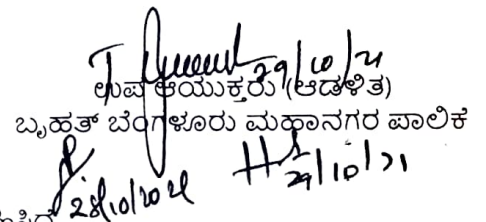 29/10/21
ಉಪ ಆಯುಕ್ತರು (ಆಡಳಿತ)
ಬೃಹತ್ ಬೆಂಗಳೂರು ಮಹಾನಗರ ಪಾಲಿಕೆ
28/10/2021 29/10/21